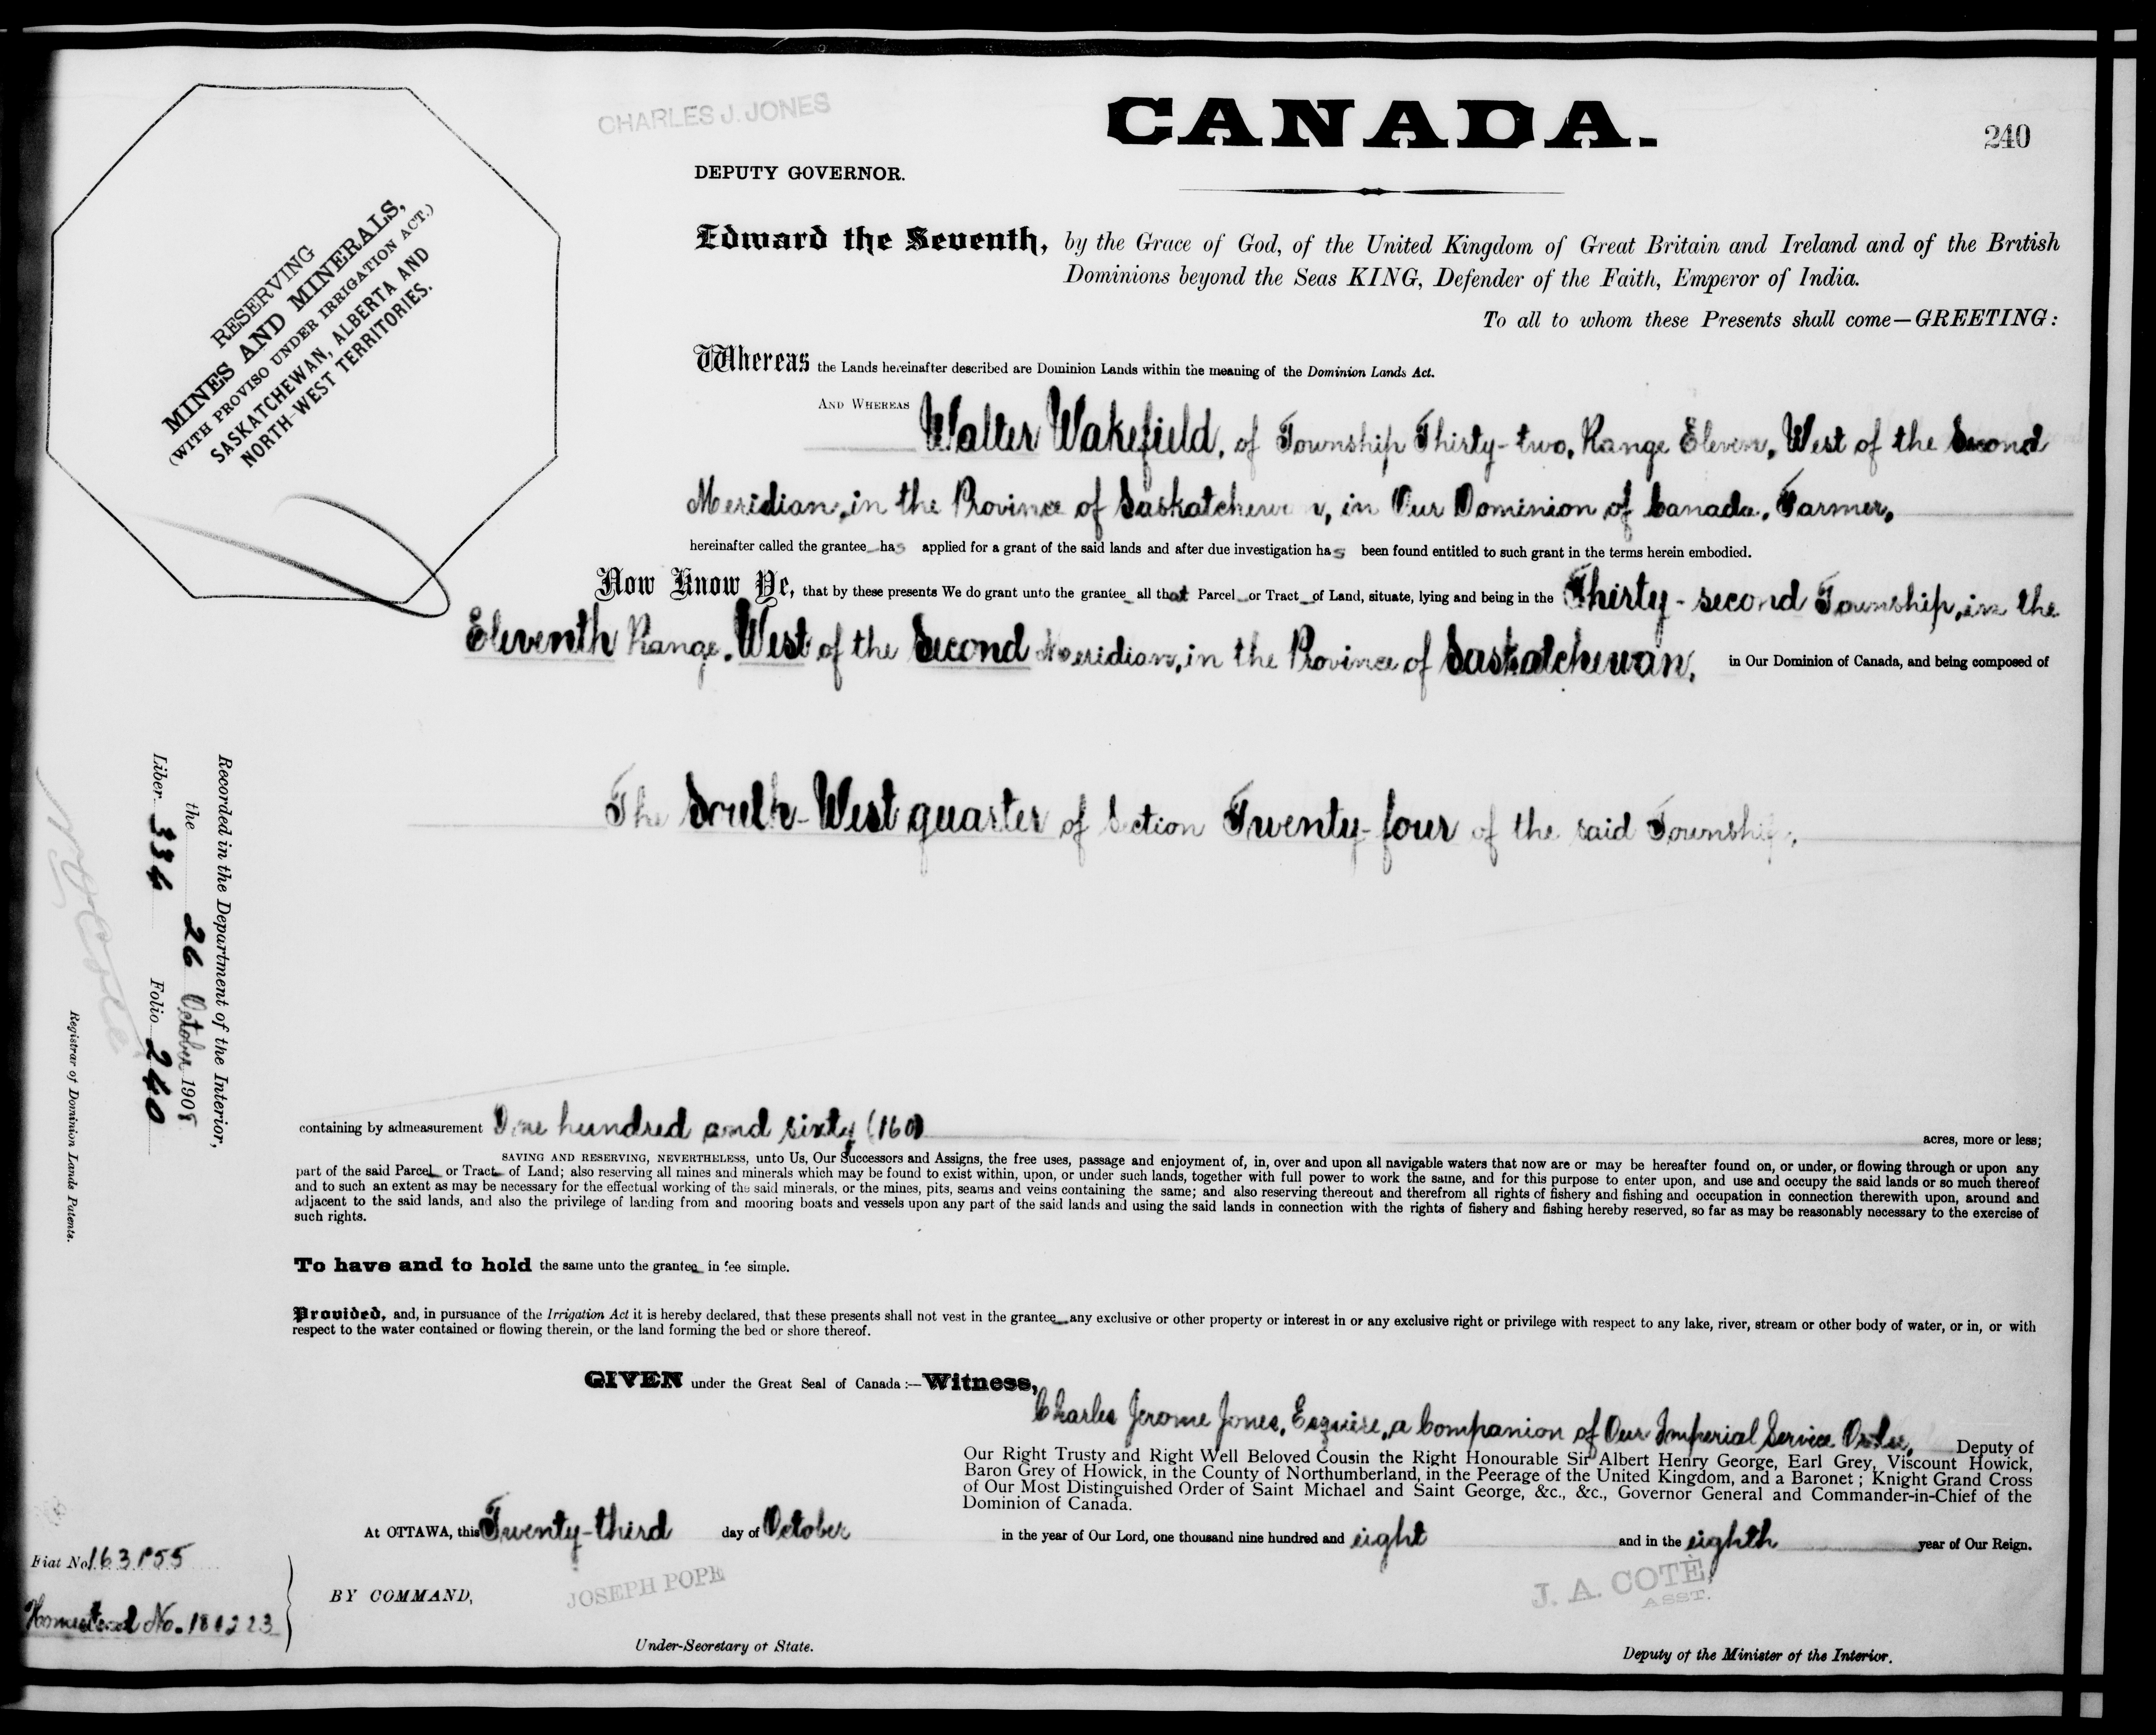 CHARLES J. JONES
CANADA.
240
DEPUTY GOVERNOR.
Edward the Seventh, by the Grace of God, of the United Kingdom of Great Britain and Ireland and of the British
Dominions beyond the Seas KING, Defender of the Faith, Emperor of India.
To all to whom these Presents shall come—GREETING:
RESERVING
MINES AND MINERALS,
(WITH PROVISO UNDER IRRIGATION ACT.)
SASKATCHEWAN, ALBERTA AND
NORTH-WEST TERRITORIES.
Whereas the Lands hereinafter described are Dominion Lands within the meaning of the Dominion Lands Act.
AND WHEREAS
Walter Wakefield, of Township Thirty-two, Range Eleven, West of the Second
Meridian, in the Province of Saskatchewan, in Our Dominion of Canada, Farmer,
hereinafter called the grantee has applied for a grant of the said lands and after due investigation has been found entitled to such grant in the terms herein embodied.
Now Know Ye, that by these presents We do grant unto the grantee all that Parcel or Tract of Land, situate, lying and being in the Thirty-second Township, in the
Eleventh Range, West of the Second Meridian, in the Province of Saskatchewan, in Our Dominion of Canada, and being composed of
The South-West quarter of Section Twenty-four of the said Township.
Recorded in the Department of the Interior,
the 26 October 1908
Liber 334 Folio 240
Registrar of Dominion Lands Patents.
containing by admeasurement One hundred and sixty (160) acres, more or less;
SAVING AND RESERVING, NEVERTHELESS, unto Us, Our Successors and Assigns, the free uses, passage and enjoyment of, in, over and upon all navigable waters that now are or may be hereafter found on, or under, or flowing through or upon any
part of the said Parcel or Tract of Land; also reserving all mines and minerals which may be found to exist within, upon, or under such lands, together with full power to work the same, and for this purpose to enter upon, and use and occupy the said lands or so much thereof
and to such an extent as may be necessary for the effectual working of the said minerals, or the mines, pits, seams and veins containing the same; and also reserving thereout and therefrom all rights of fishery and fishing and occupation in connection therewith upon, around and
adjacent to the said lands, and also the privilege of landing from and mooring boats and vessels upon any part of the said lands and using the said lands in connection with the rights of fishery and fishing hereby reserved, so far as may be reasonably necessary to the exercise of
such rights.
To have and to hold the same unto the grantee in fee simple.
Provided, and, in pursuance of the Irrigation Act it is hereby declared, that these presents shall not vest in the grantee any exclusive or other property or interest in or any exclusive right or privilege with respect to any lake, river, stream or other body of water, or in, or with
respect to the water contained or flowing therein, or the land forming the bed or shore thereof.
GIVEN under the Great Seal of Canada:—Witness,
Charles Jerome Jones, Esquire, a Companion of Our Imperial Service Order, Deputy of
Our Right Trusty and Right Well Beloved Cousin the Right Honourable Sir Albert Henry George, Earl Grey, Viscount Howick,
Baron Grey of Howick, in the County of Northumberland, in the Peerage of the United Kingdom, and a Baronet; Knight Grand Cross
of Our Most Distinguished Order of Saint Michael and Saint George, &c., &c., Governor General and Commander-in-Chief of the
Dominion of Canada.
At OTTAWA, this Twenty-third day of October in the year of Our Lord, one thousand nine hundred and eight and in the eighth year of Our Reign.
Fiat No.
BY COMMAND,
JOSEPH POPE
J. A. COTÈ,
ASST.
Homestead No.
Under-Secretary of State.
Deputy of the Minister of the Interior.